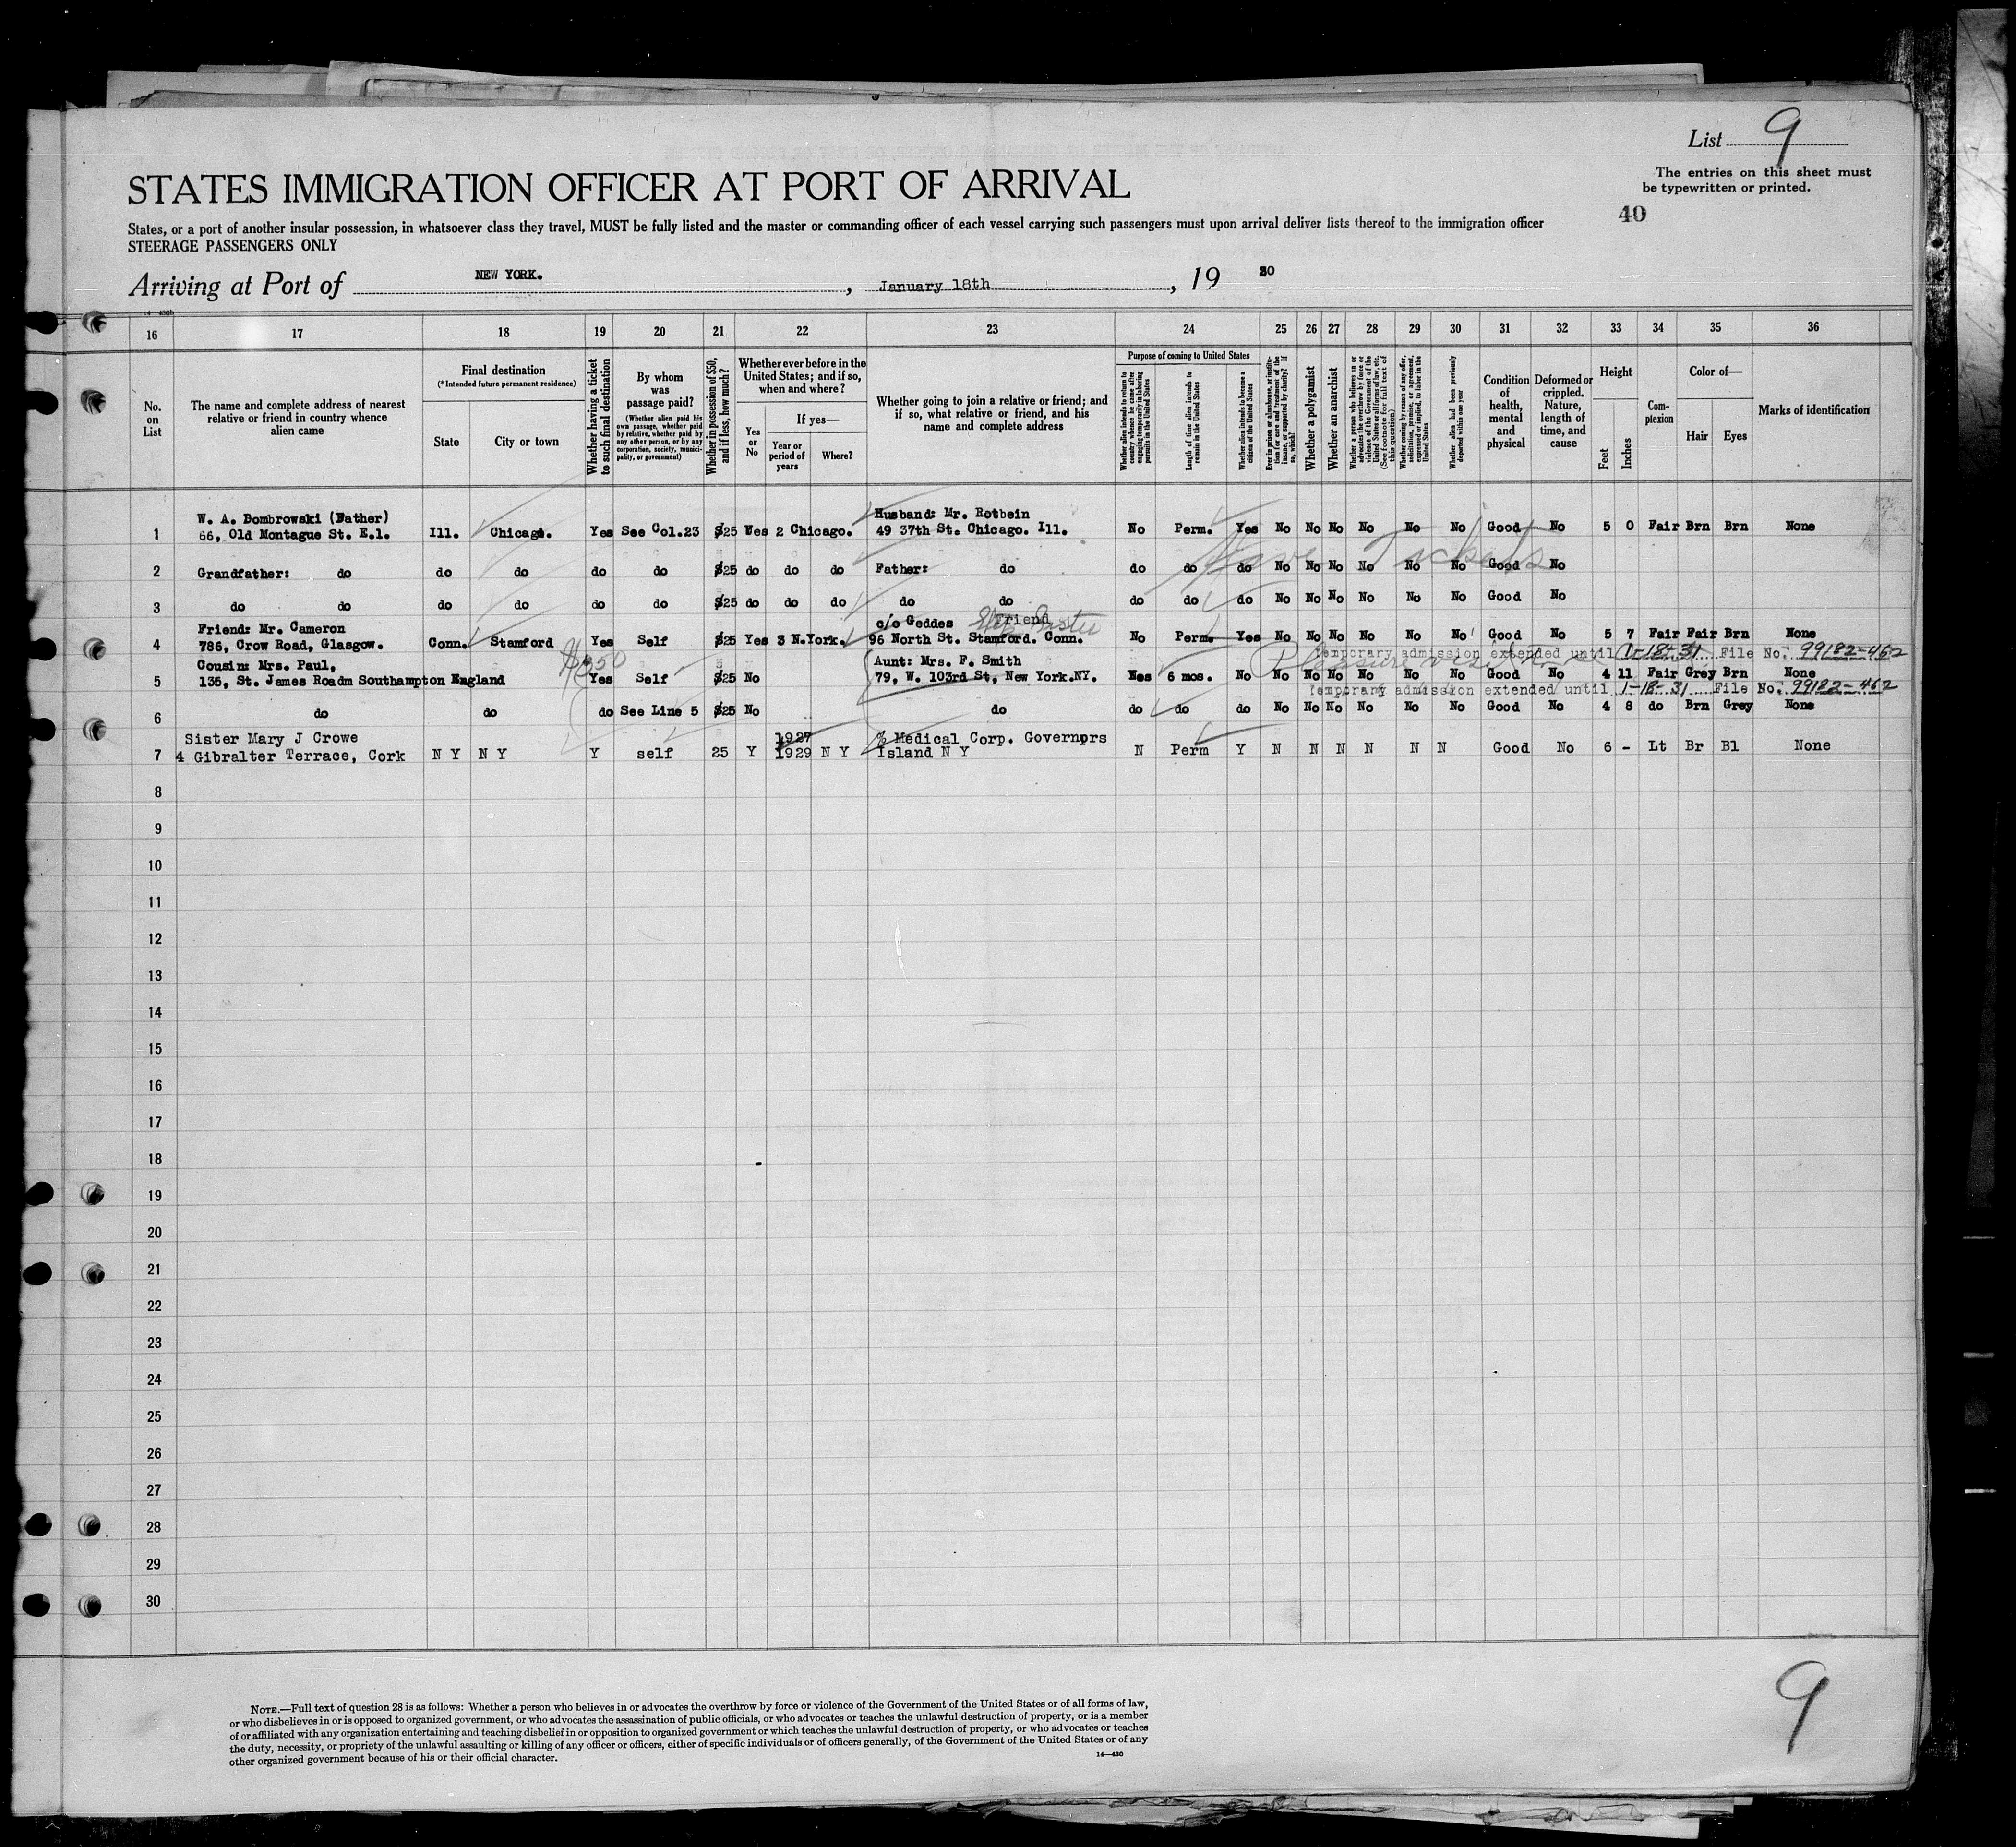 List 9
The entries on this sheet must
be typewritten or printed.
40
STATES IMMIGRATION OFFICER AT PORT OF ARRIVAL
States, or a port of another insular possession, in whatsoever class they travel, MUST be fully listed and the master or commanding officer of each vessel carrying such passengers must upon arrival deliver lists thereof to the immigration officer
STEERAGE PASSENGERS ONLY
Arriving at Port of NEW YORK. , January 18th , 19 30
16 17 18 19 20 21 22 23 24 25 26 27 28 29 30 31 32 33 34 35 36
No. on List
The name and complete address of nearest relative or friend in country whence alien came
Final destination
(*Intended future permanent residence)
State
City or town
Whether having a ticket to such final destination
By whom was passage paid?
(Whether alien paid his own passage, whether paid by relative, whether paid by any other person, or by any corporation, society, municipality, or government)
Whether in possession of $50, and if less, how much?
Whether ever before in the United States; and if so, when and where?
Yes or No
If yes—
Year or period of years
Where?
Whether going to join a relative or friend; and if so, what relative or friend, and his name and complete address
Purpose of coming to United States
Whether alien intends to return to country whence he came after engaging temporarily in laboring pursuits in the United States
Length of time alien intends to remain in the United States
Whether alien intends to become a citizen of the United States
Ever in prison or almshouse, or institution for care and treatment of the insane, or supported by charity? If so, which?
Whether a polygamist
Whether an anarchist
Whether a person who believes in or advocates the overthrow by force or violence of the Government of the United States or all forms of law, etc. (See footnote for full text of this question)
Whether coming by reason of any offer, solicitation, promise, or agreement, expressed or implied, to labor in the United States
Whether alien had been previously deported within one year
Condition of health, mental and physical
Deformed or crippled. Nature, length of time, and cause
Height
Feet
Inches
Complexion
Color of—
Hair
Eyes
Marks of identification
W. A. Dombrowski (Father) Husband: Mr. Rotbein
1 66, Old Montague St. E.1. Ill. Chicago. Yes See Col.23 $25 Yes 2 Chicago. 49 37th St. Chicago. Ill. No Perm. Yes No No No No No No Good No 5 0 Fair Brn Brn None
Have Tickets
2 Grandfather: do do do do do $25 do do do Father: do do do do No No No No No No Good No
3 do do do do do do $25 do do do do do do do do No No No No No No Good No
Friend: Mr. Cameron c/o Geddes Friend
4 786, Crow Road, Glasgow. Conn. Stamford Yes Self $25 Yes 3 N.York. 96 North St. Stamford. Conn. No Perm. Yes No No No No No No Good No 5 7 Fair Fair Brn None
Temporary admission extended until 1-18-31 File No. 99182-462
Cousin: Mrs. Paul, $350 Aunt: Mrs. F. Smith Pleasure visit
5 135, St. James Roadm Southampton England Yes Self $25 No 79, W. 103rd St, New York.NY. Yes 6 mos. No No No No No No No Good No 4 11 Fair Grey Brn None
Temporary admission extended until 1-18-31 File No. 99182-462
6 do do do See Line 5 $25 No do do do do No No No No No No Good No 4 8 do Brn Grey None
Sister Mary J Crowe 1927 % Medical Corp. Governprs
7 4 Gibralter Terrace, Cork N Y N Y Y self 25 Y 1929 N Y Island N Y N Perm Y N N N N N N Good No 6 - Lt Br Bl None
8
9
10
11
12
13
14
15
16
17
18
19
20
21
22
23
24
25
26
27
28
29
30
NOTE.—Full text of question 28 is as follows: Whether a person who believes in or advocates the overthrow by force or violence of the Government of the United States or of all forms of law,
or who disbelieves in or is opposed to organized government, or who advocates the assassination of public officials, or who advocates or teaches the unlawful destruction of property, or is a member
of or affiliated with any organization entertaining and teaching disbelief in or opposition to organized government or which teaches the unlawful destruction of property, or who advocates or teaches
the duty, necessity, or propriety of the unlawful assaulting or killing of any officer or officers, either of specific individuals or of officers generally, of the Government of the United States or of any
other organized government because of his or their official character.
14—430
9